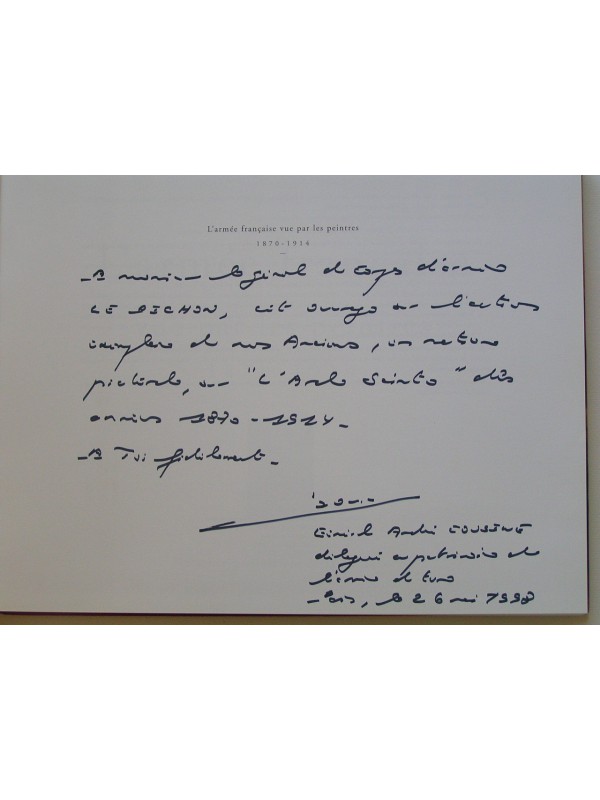 L'armée française vue par les peintres
1870-1914
A monsieur le général de Corps d'armée
LE PICHON, cet ouvrage sur l'action
exemplaire de nos Anciens,
picturale, sur "L'Arche Sainte" des
années 1870-1914.
A Toi fidèlement.
Général André COUSINE
délégué au patrimoine de
l'armée de terre
Paris, le 26 mai 1998